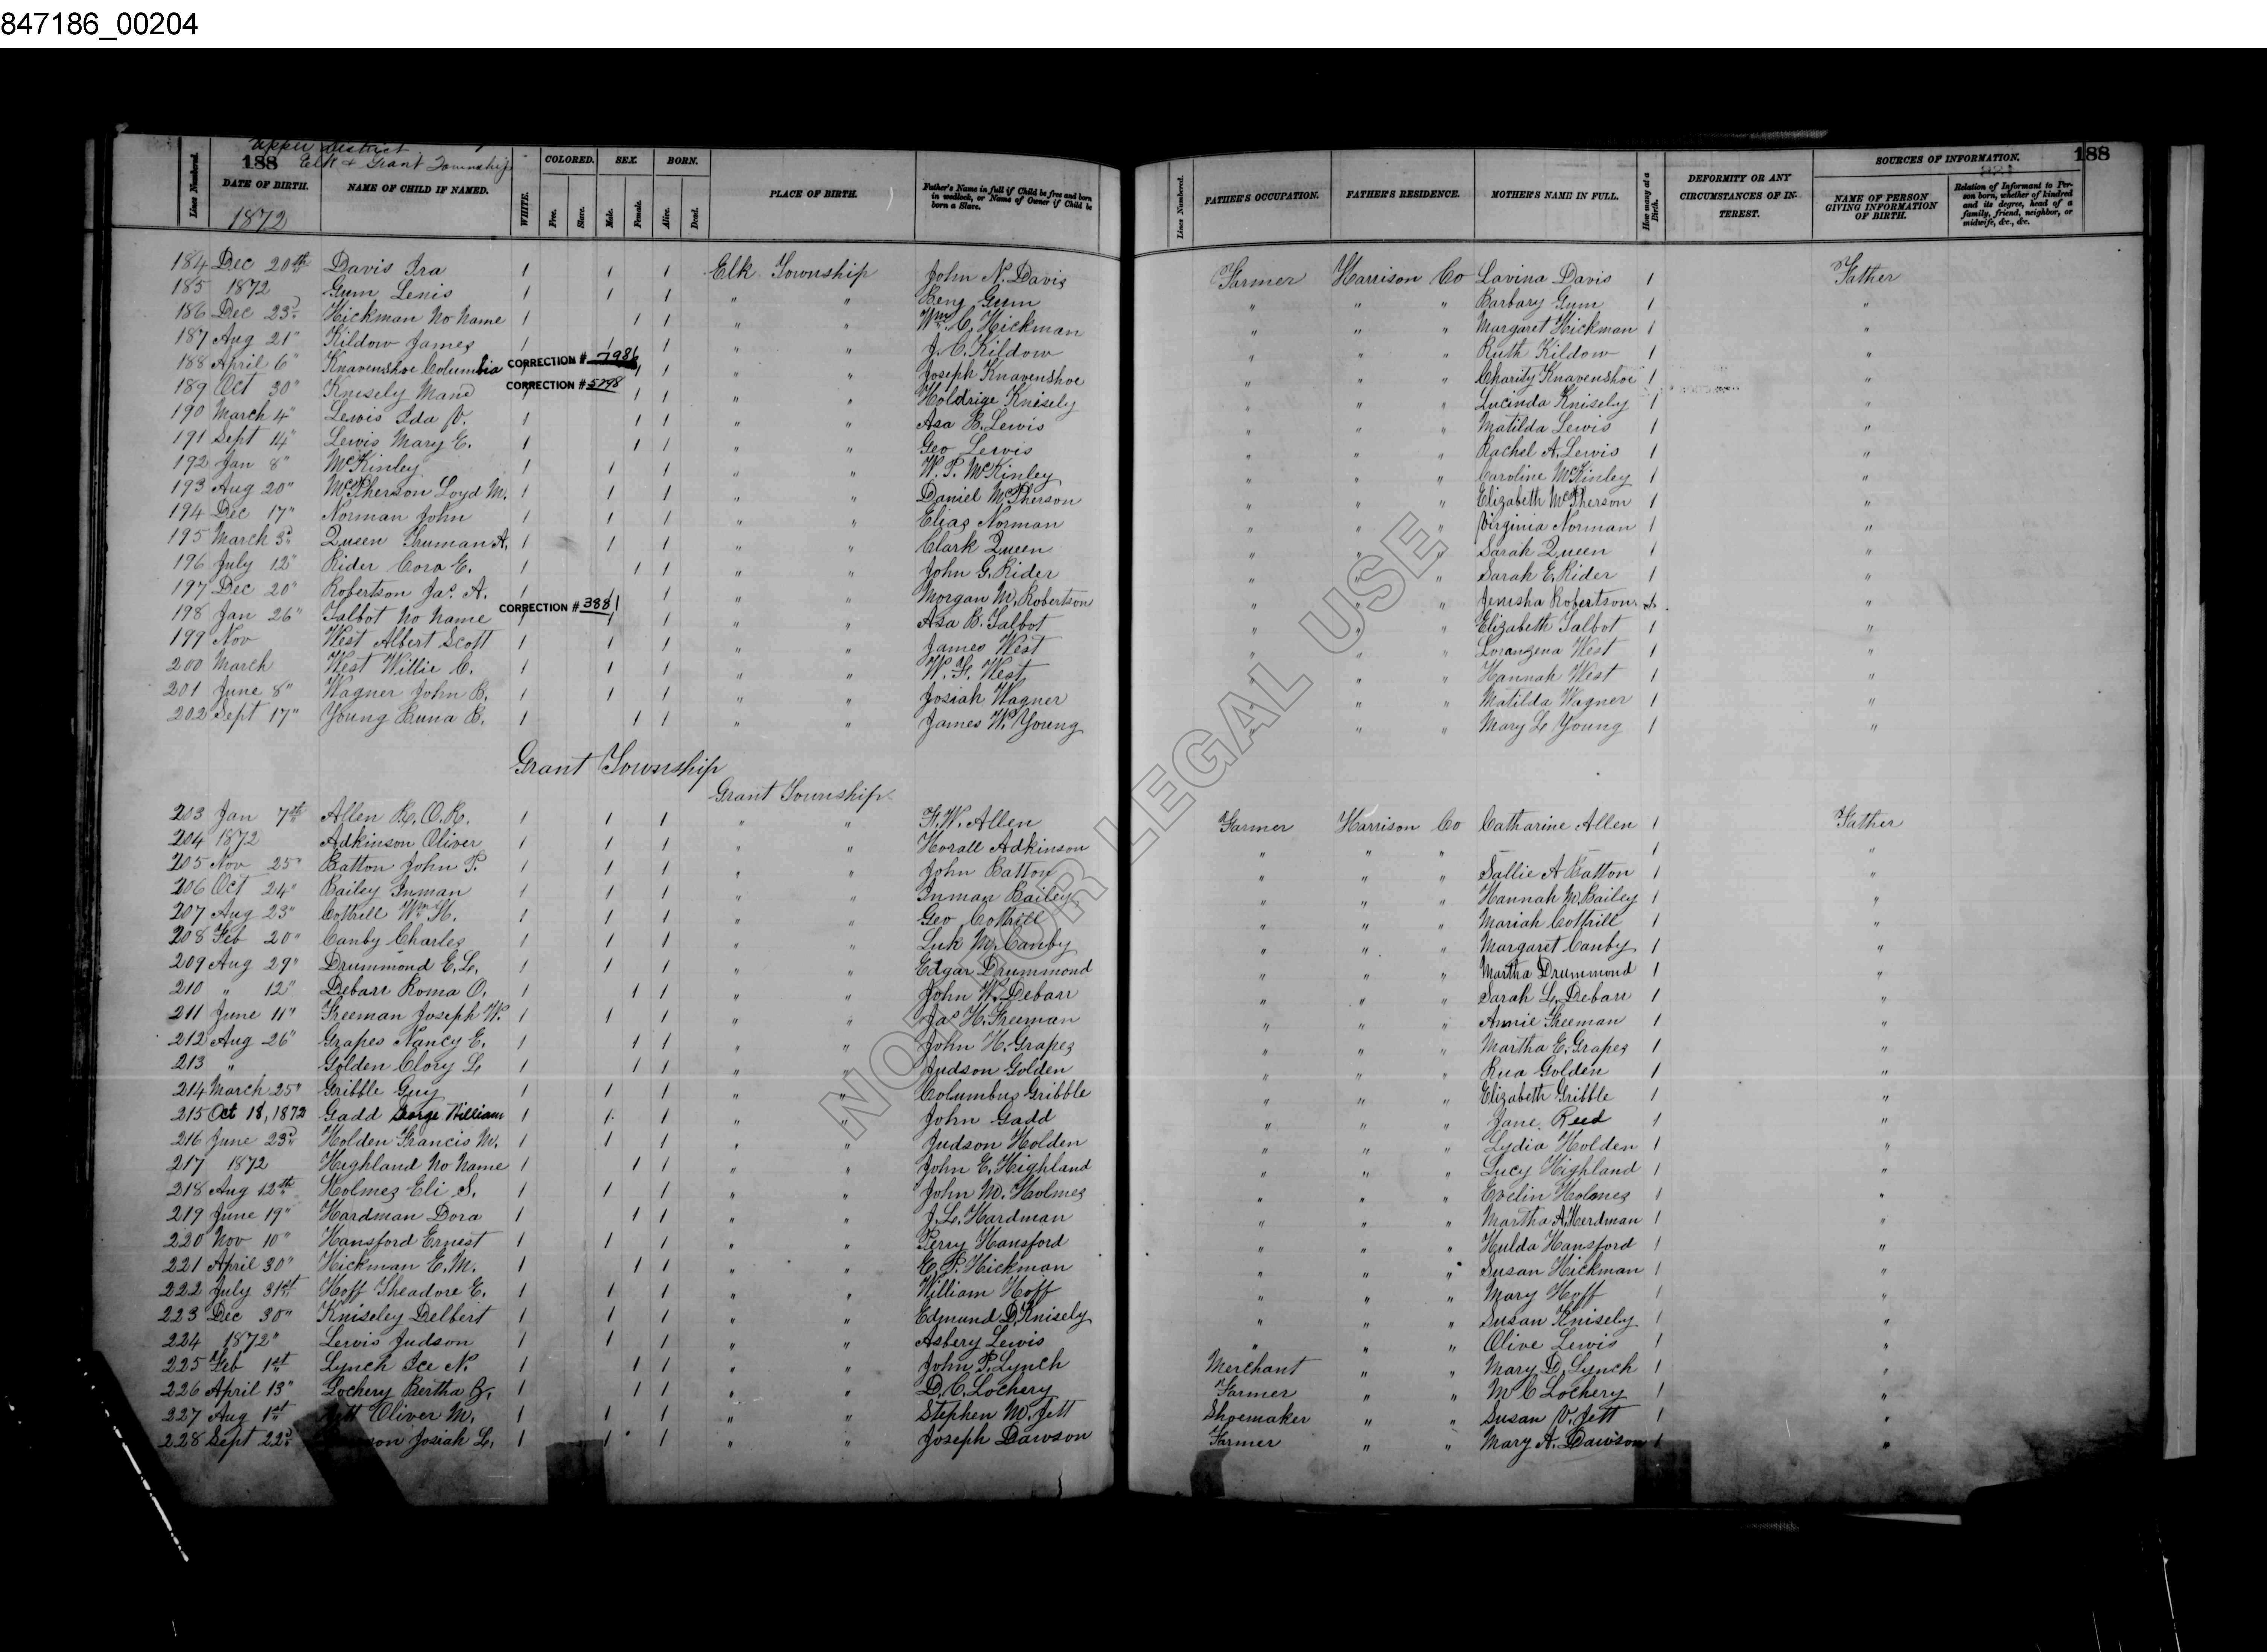 847186_00204
Upper District
188 Elk & Grant Township
Lines Numbered. DATE OF BIRTH. NAME OF CHILD IF NAMED. WHITE. COLORED. Free. Slave. SEX. Male. Female. BORN. Alive. Dead. PLACE OF BIRTH. Father's Name in full if Child be free and born in wedlock, or Name of Owner if Child be born a Slave. Lines Numbered. FATHER'S OCCUPATION. FATHER'S RESIDENCE. MOTHER'S NAME IN FULL. How many at a Birth. DEFORMITY OR ANY CIRCUMSTANCES OF INTEREST. SOURCES OF INFORMATION. NAME OF PERSON GIVING INFORMATION OF BIRTH. Relation of Informant to Person born, whether of kindred and its degree, head of a family, friend, neighbor, or midwife, &c., &c. 188
1872
184 Dec 20th Davis Ira 1 1 1 Elk Township John N. Davis Farmer Harrison Co Lavina Davis 1 Father
185 1872 Gum Lenis 1 1 1 " " Benj Gum " " " Barbary Gum 1 "
186 Dec 23d Hickman No Name 1 1 1 " " Wm. C. Hickman " " " Margaret Hickman 1 "
187 Aug 21" Kildow James 1 1 1 " " J. C. Kildow " " " Ruth Kildow 1 "
188 April 6" Knavenshoe Columbia CORRECTION # 7986 1 1 " " Joseph Knavenshoe " " " Charity Knavenshoe 1 "
189 Oct 30" Knisely Maud CORRECTION # 5798 1 1 1 " " Holdrige Knisely " " " Lucinda Knisely 1 "
190 March 4" Lewis Ida V. 1 1 1 " " Asa B. Lewis " " " Matilda Lewis 1 "
191 Sept 14" Lewis Mary E. 1 1 1 " " Geo Lewis " " " Rachel A. Lewis 1 "
192 Jan 8" McKinley 1 1 1 " " W. P. McKinley " " " Caroline McKinley 1 "
193 Aug 20" McPherson Loyd M. 1 1 1 " " Daniel McPherson " " " Elizabeth McPherson 1 "
194 Dec 17" Norman John 1 1 1 " " Elias Norman " " " Virginia Norman 1 "
195 March 3d Queen Truman A. 1 1 1 " " Clark Queen " " " Sarah Queen 1 "
196 July 12" Rider Cora E. 1 1 1 " " John G. Rider " " " Sarah E. Rider 1 "
197 Dec 20" Robertson Jas. A. 1 1 1 " " Morgan M. Robertson " " " Jenisha Robertson "
198 Jan 26" Talbot No Name CORRECTION # 3881 1 1 1 " " Asa B. Talbot " " " Elizabeth Talbot 1 "
199 Nov West Albert Scott 1 1 1 " " James West " " " Loranzena West 1 "
200 March West Willie C. 1 1 1 " " W. F. West " " " Hannah West 1 "
201 June 8" Wagner John B. 1 1 1 " " Josiah Wagner " " " Matilda Wagner 1 "
202 Sept 17" Young Buna B. 1 1 1 " " James W. Young " " " Mary L Young 1 "
Grant Township
Grant Township
203 Jan 7th Allen R. O. R. 1 1 1 " " F. W. Allen Farmer Harrison Co Catharine Allen 1 Father
204 1872 Adkinson Oliver 1 1 1 " " Horall Adkinson " " " 1 "
205 Nov 25" Batton John P. 1 1 1 " " John Batton " " " Sallie A Batton 1 "
206 Oct 24" Bailey Inman 1 1 1 " " Inman Bailey " " " Hannah M. Bailey 1 "
207 Aug 23" Cottrill Wm. H. 1 1 1 " " Geo Cottrill " " " Mariah Cottrill 1 "
208 Feb 20" Canby Charles 1 1 1 " " Luk M. Canby " " " Margaret Canby 1 "
209 Aug 29" Drummond E. L. 1 1 1 " " Edgar Drummond " " " Martha Drummond 1 "
210 " 12" Debarr Roma O. 1 1 1 " " John W. Debarr " " " Sarah L. Debarr 1 "
211 June 11" Freeman Joseph W. 1 1 1 " " Jas H. Freeman " " " Annie Freeman 1 "
212 Aug 26" Grapes Nancy E. 1 1 1 " " John H. Grapes " " " Martha E. Grapes 1 "
213 " Golden Clory L 1 1 1 " " Judson Golden " " " Rua Golden 1 "
214 March 25" Gribble Guy 1 1 1 " " Columbus Gribble " " " Elizabeth Gribble 1 "
215 Oct 18, 1872 Gadd George William 1 1 1 " " John Gadd " " " Jane Reed 1 "
216 June 23d Holden Francis M. 1 1 1 " " Judson Holden " " " Lydia Holden 1 "
217 1872 Highland No Name 1 1 1 " " John E. Highland " " " Lucy Highland 1 "
218 Aug 12th Holmes Eli S. 1 1 1 " " John M. Holmes " " " Evelin Holmes 1 "
219 June 19" Hardman Dora 1 1 1 " " J. L. Hardman " " " Martha A. Herdman 1 "
220 Nov 10" Hansford Ernest 1 1 1 " " Perry Hansford " " " Hulda Hansford 1 "
221 April 30" Hickman E. M. 1 1 1 " " E. P. Hickman " " " Susan Hickman 1 "
222 July 31st Hoff Theadore E. 1 1 1 " " William Hoff " " " Mary Hoff 1 "
223 Dec 30" Kniseley Delbert 1 1 1 " " Edmund D. Knisely " " " Susan Knisely 1 "
224 1872" Lewis Judson 1 1 1 " " Asbery Lewis " " " Olive Lewis 1 "
225 Feb 1st Lynch Ice N. 1 1 1 " " John P. Lynch Merchant " " Mary D. Lynch 1 "
226 April 13" Lochery Bertha B. 1 1 1 " " D. C. Lochery Farmer " " M C Lochery 1 "
227 Aug 1st Oliver M. 1 1 1 " " Stephen M. Jett Shoemaker " " Susan V. Jett 1 "
228 Sept 22d Josiah L. 1 1 1 " " Joseph Dawson Farmer " " Mary A. Dawson 1 "
NOT FOR LEGAL USE